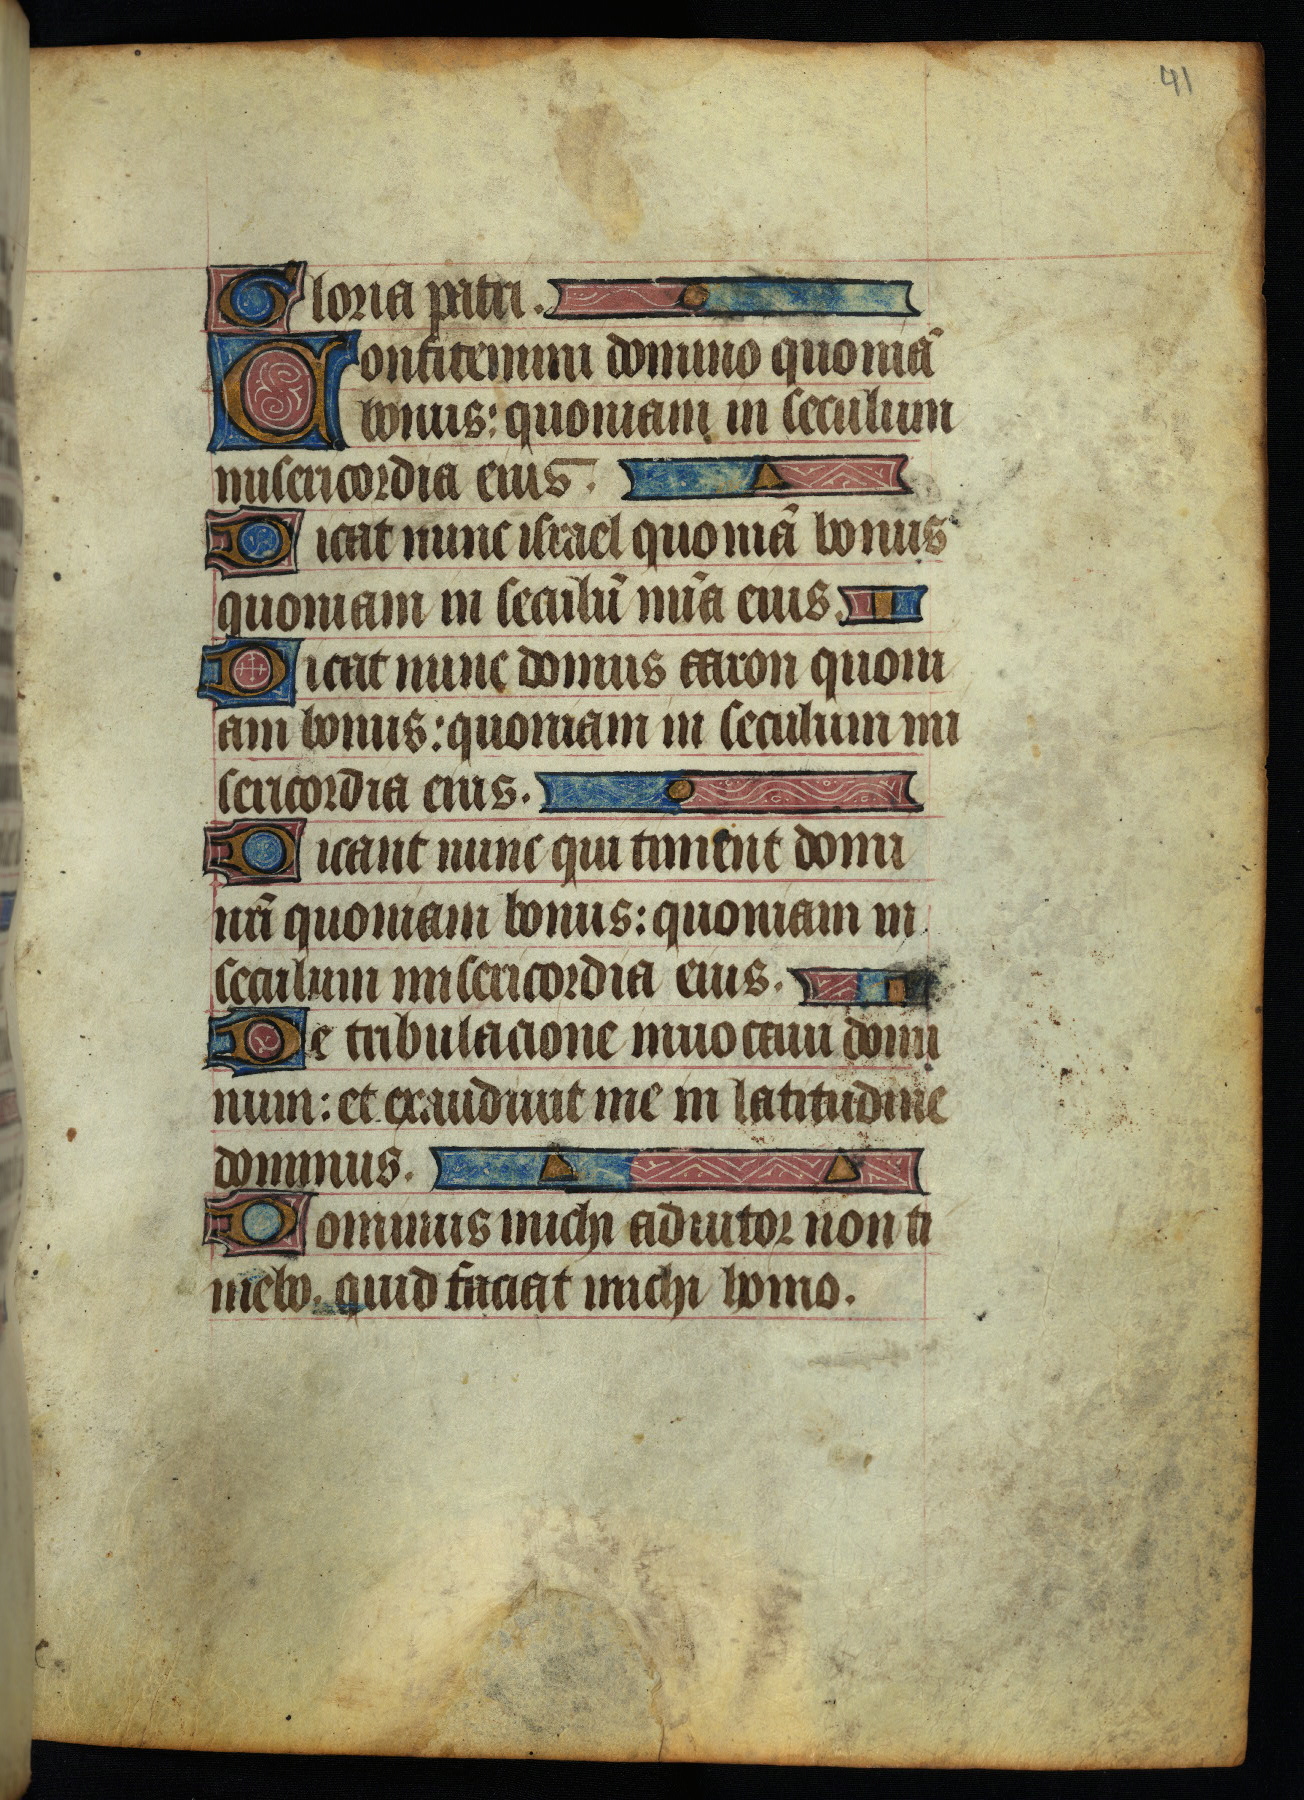 41
Gloria patri.
Confitemini domino quoniã
bonus: quoniam in seculum
misericordia eius.
Dicat nunc israel quoniã bonus
quoniam in seculũ mĩa eius.
Dicat nunc domus aaron quoni
am bonus: quoniam in seculum mi
sericordia eius.
Dicant nunc qui timent domi
nũ quoniam bonus: quoniam in
seculum misericordia eius.
De tribulacione inuocaui domi
num: et exaudiuit me in latitudine
dominus.
Dominus michi adiutor non ti
mebo. quid faciat michi homo.
c